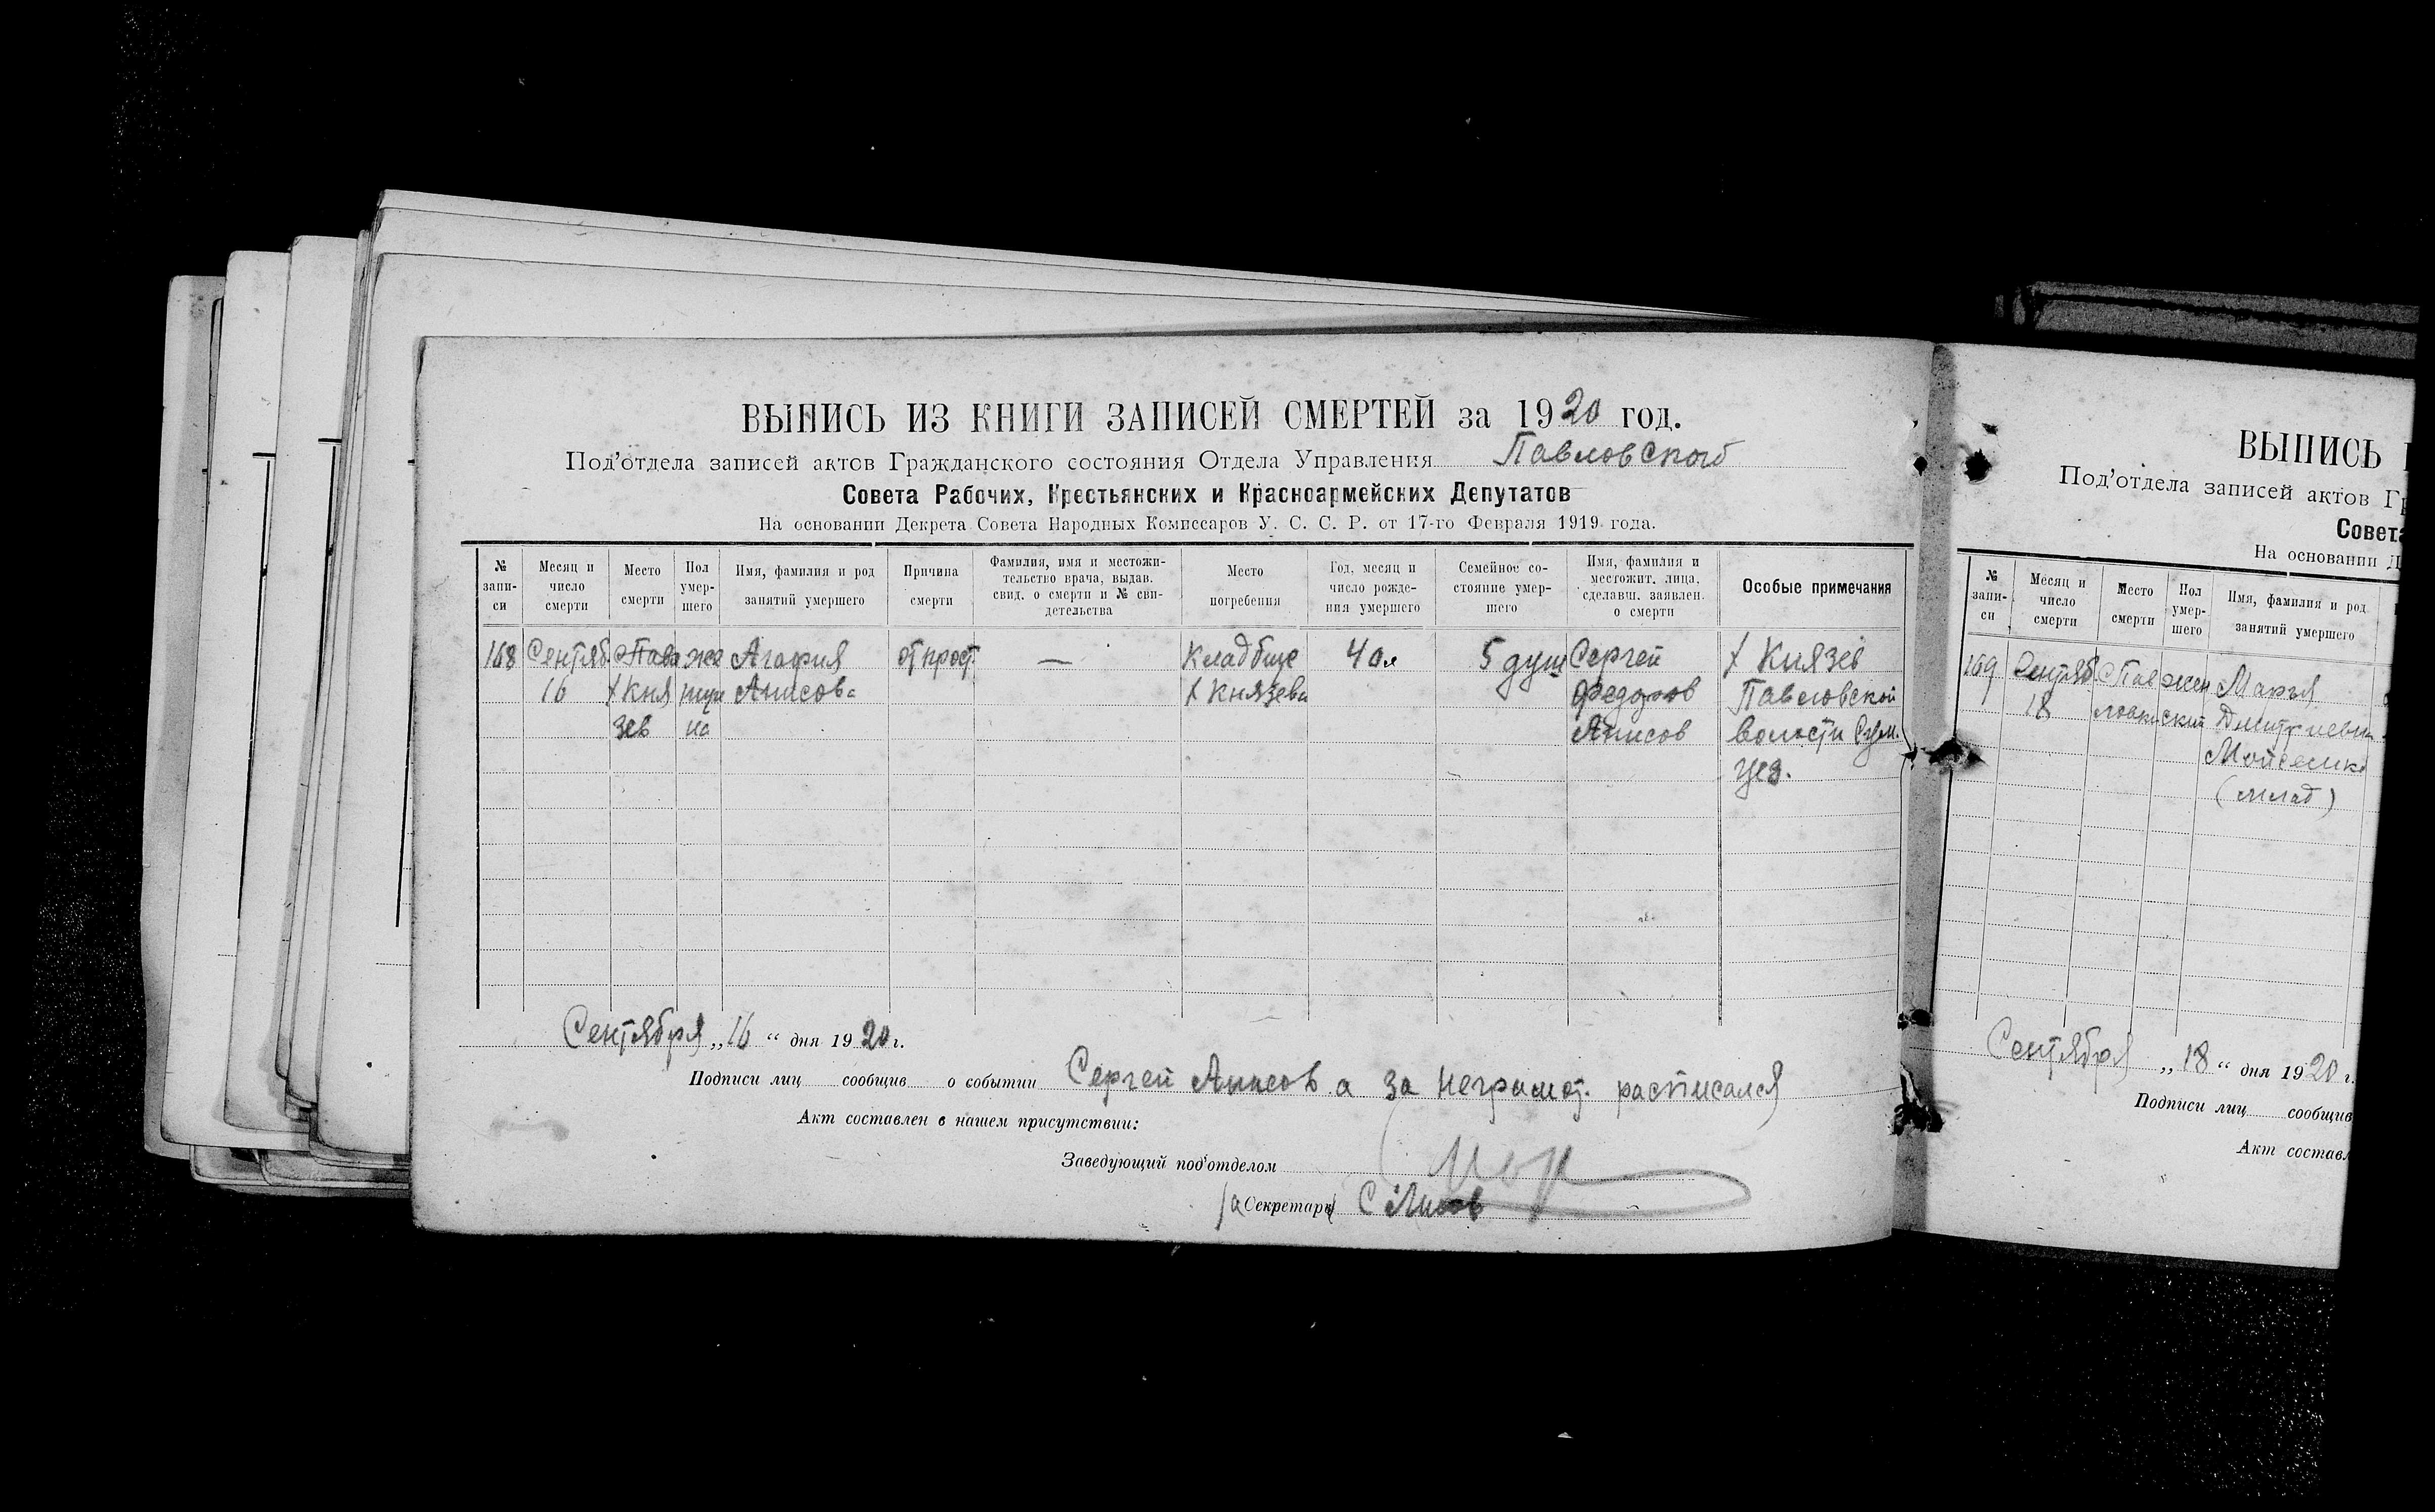 ВЫПИСЬ ИЗ КНИГИ ЗАПИСЕЙ СМЕРТЕЙ за 1920 год.
Под'отдела записей актов Гражданского состояния Отдела Управления Павловского
Совета Рабочих, Крестьянских и Красноармейских Депутатов
На основании Декрета Совета Народных Комиссаров У. С. С. Р. от 17-го Февраля 1919 года.
№ записи
Месяц и число смерти
Место смерти
Пол умершего
Имя, фамилия и род занятий умершего
Причина смерти
Фамилия, имя и местожительство врача, выдав. свид. о смерти и № свидетельства
Место погребения
Год, месяц и число рождения умершего
Семейное состояние умершего
Имя, фамилия и местожит. лица, сделавш. заявлен. о смерти
Особые примечания
168 Сентяб. Пав же Агафия от прост. — Кладбище 40 л 5 душ Сергей х Князев
16 х Кня щи Анисова х Князева Федоров Павловской
зев на Анисов волости Сум.
уез.
Сентября „16“ дня 1920 г.
Подписи лиц сообщив о событии Сергей Анисов а за неграмот. расписался
Акт составлен в нашем присутствии:
Заведующий под'отделом
Секретарь
ВЫПИСЬ
Под'отдела записей актов Гр
Совета
На основании Д
№ записи
Месяц и число смерти
Место смерти
Пол умершего
Имя, фамилия и род занятий умершего
169 Сентяб С Пав жен Марья
18 ловки ский Дмитриевна
(млад)
Сентября „18“ дня 1920 г.
Подписи лиц сообщив
Акт составл